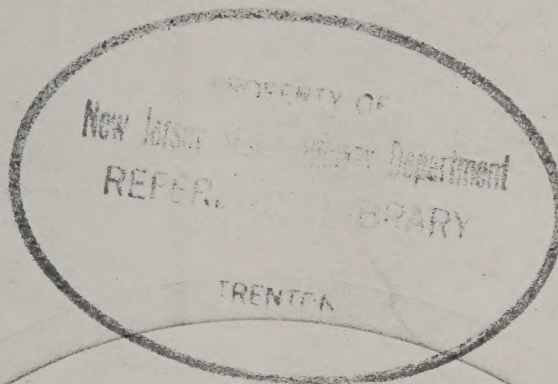 PROPERTY OF
New Jersey Department
REFERENCE LIBRARY
TRENTON